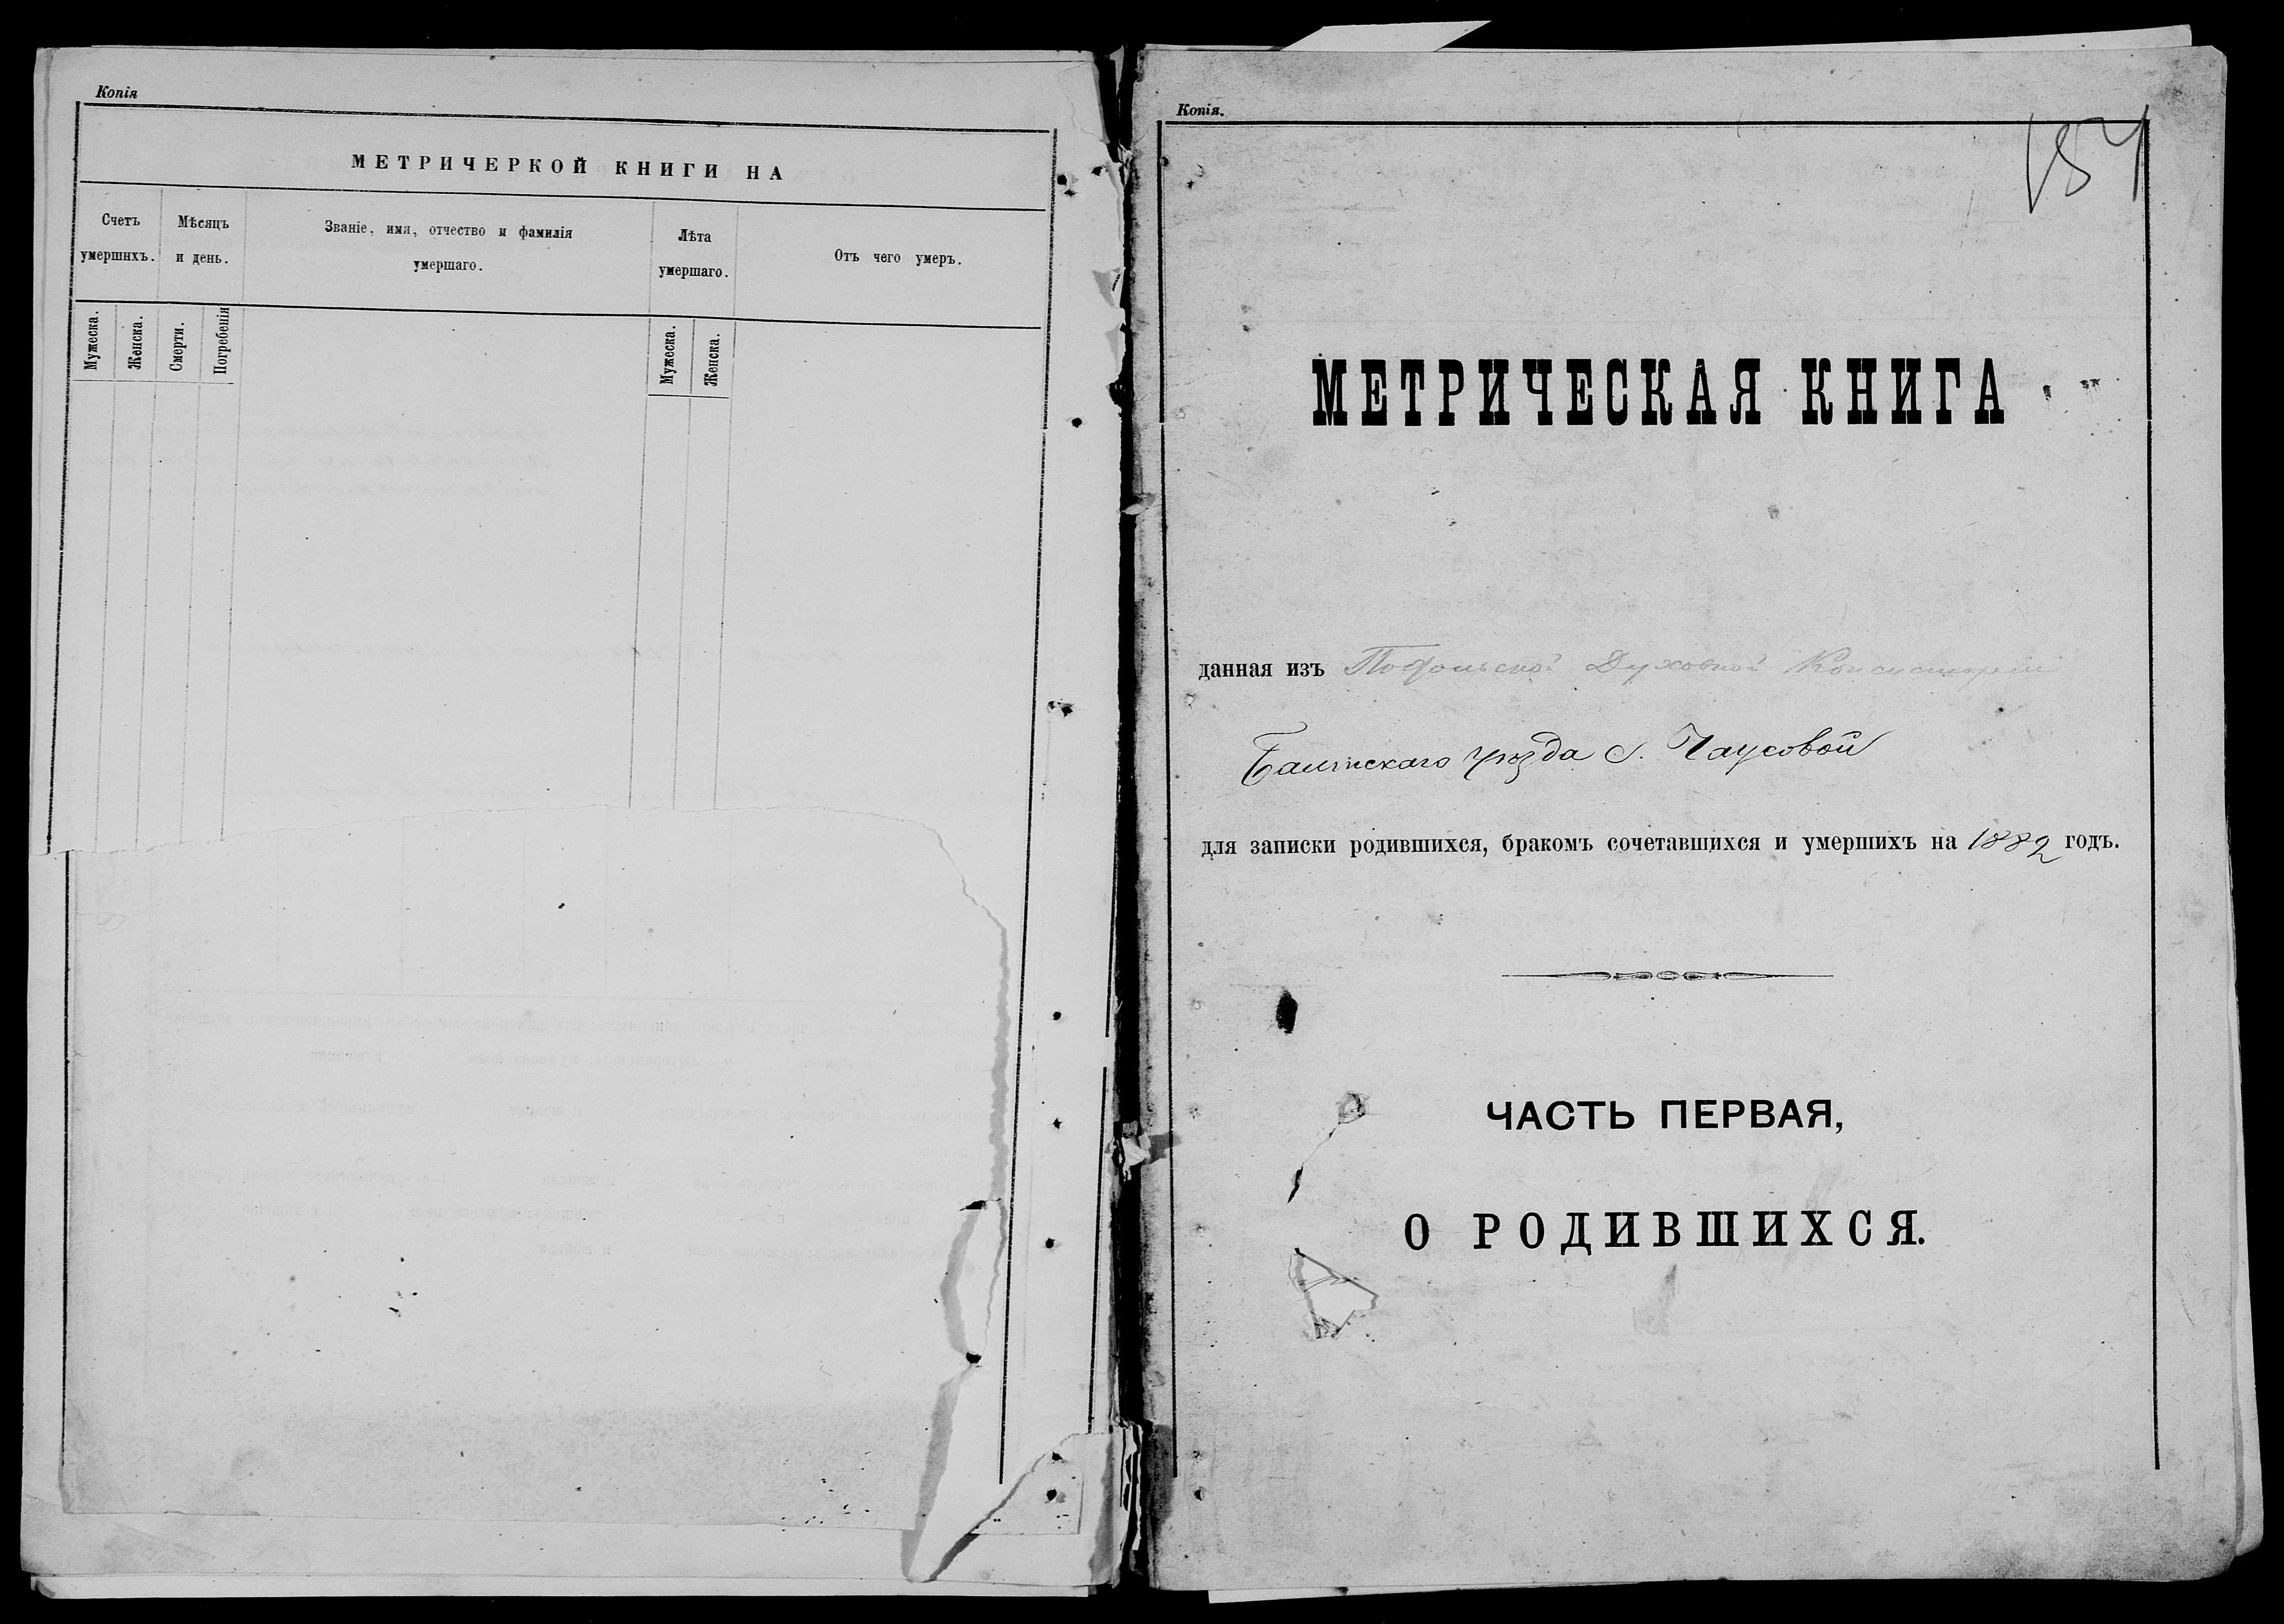 Копія
МЕТРИЧЕРКОЙ КНИГИ НА
Счетъ умершихъ.
Мѣсяцъ и день.
Званіе, имя, отчество и фамилія умершаго.
Лѣта умершаго.
Отъ чего умеръ.
Мужеска.
Женска.
Смерти.
Погребенія
Мужеска.
Женска.
Копія.
МЕТРИЧЕСКАЯ КНИГА
данная изъ Подольской Духовной Консисторіи
Балтскаго уѣзда с. Чаусовой
для записки родившихся, бракомъ сочетавшихся и умершихъ на 1882 годъ.
ЧАСТЬ ПЕРВАЯ,
О РОДИВШИХСЯ.